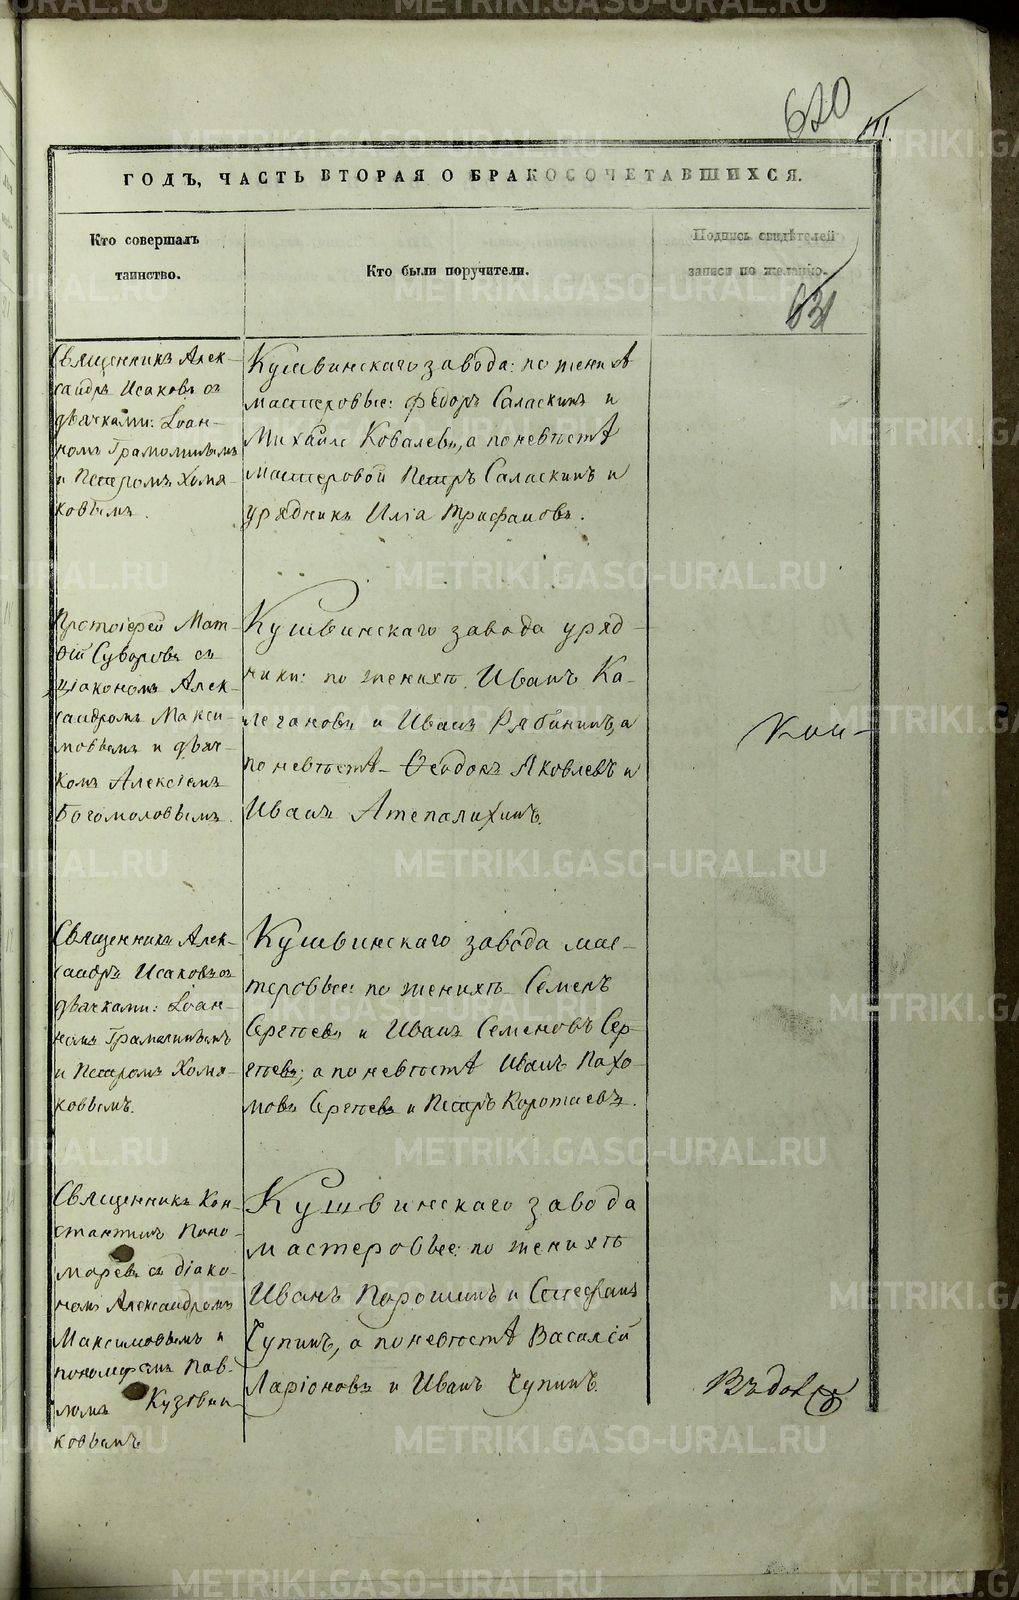 620
III.
ГОДЪ, ЧАСТЬ ВТОРАЯ О БРАКОСОЧЕТАВШИХСЯ.
Кто совершалъ
таинство.
Кто были поручители.
Подпись свидѣтелей
записи по желанію.
631
Священникъ Алек-
сандръ Исаковъ съ
дьячками: Іоан-
номъ Грамолинымъ
и Петромъ Хомя-
ковымъ.
Кушвинскаго завода: по женихѣ
мастеровые: Ѳедоръ Саласкинъ и
Михайло Ковалевъ, а по невѣстѣ
мастеровой Петръ Саласкинъ и
урядникъ Иліа Трифановъ.
Протоіерей Мат-
ѳій Суворовъ съ
діакономъ Алек-
сандромъ Макси-
мовымъ и дьяч-
комъ Алексіемъ
Богомоловымъ.
Кушвинскаго завода уряд-
ники: по женихѣ Иванъ Ка-
легановъ и Иванъ Рябининъ, а
по невѣстѣ Ѳеодоръ Яковлевъ и
Иванъ Атепалихинъ.
Кон-
Священникъ Алек-
сандръ Исаковъ съ
дьячками: Іоан-
номъ Грамолинымъ
и Петромъ Хомя-
ковымъ.
Кушвинскаго завода мас-
теровые: по женихѣ Семенъ
Сергѣевъ и Иванъ Семеновъ Сер-
гѣевъ; а по невѣстѣ Иванъ Пахо-
мовъ Сергѣевъ и Петръ Коротаевъ.
Священникъ Кон-
стантинъ Поно-
маревъ съ діако-
номъ Александромъ
Максимовымъ и
пономаремъ Пав-
ломъ Кузовни-
ковымъ
Кушвинскаго завода
мастеровые: по женихѣ
Иванъ Порошинъ и Стефанъ
Чупинъ, а по невѣстѣ Василій
Ларіоновъ и Иванъ Чупинъ.
METRIKI.GASO-URAL.RU